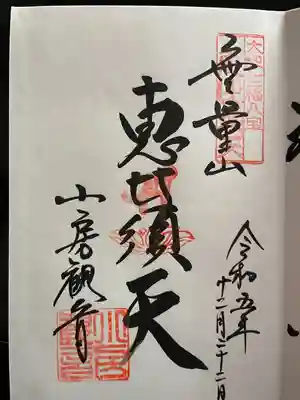 無量山
恵比須天
小房観音
令和五年
十二月二十二日